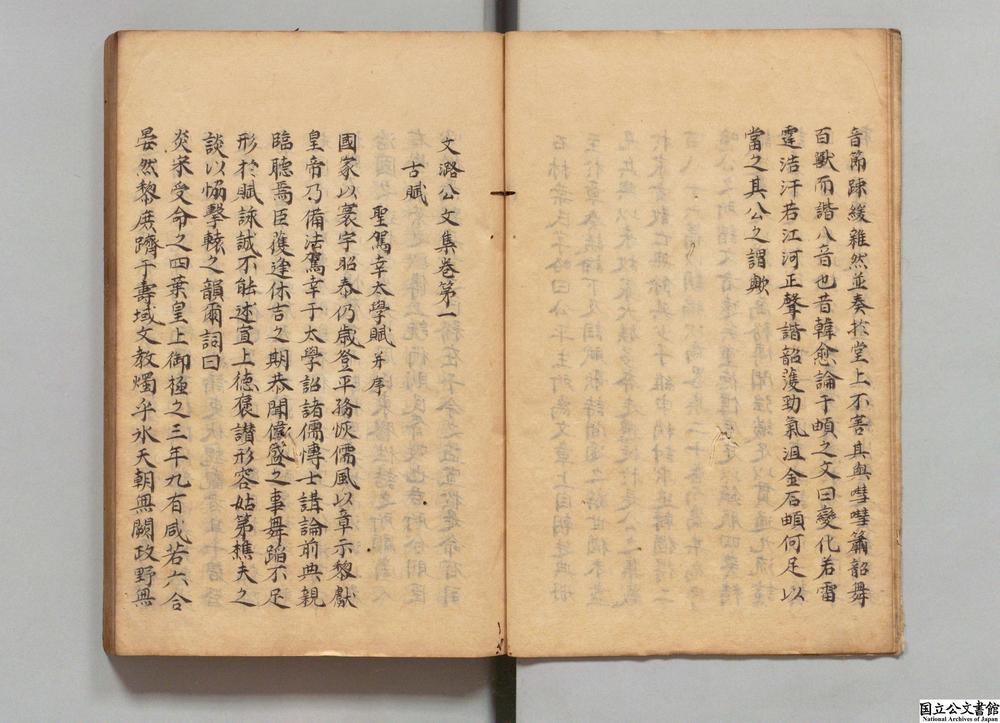 音節疎緩雜然並奏於堂上不害其與嘒嘒簫韶舞
百獸而諧八音也昔韓愈論于頔之文曰變化若雷
霆浩汗若江河正聲諧韶頀勁氣沮金石頔何足以
當之其公之謂歟
文潞公文集卷第一
古賦
聖駕幸太學賦并序
國家以寰宇昭泰仍歲登平務恢儒風以章示黎獻
皇帝乃備法駕幸于太學詔諸儒博士講論前典親
臨聽焉臣獲逢休吉之期恭聞偉盛之事舞蹈不足
形於賦詠誠不能述宣上德褒讚形容姑第樵夫之
談以恊擊轅之韻爾詞曰
炎宋受命之四葉皇上御極之三年九有咸若六合
晏然黎庶躋于壽域文教燭乎氷天朝無闕政野無
国立公文書館
National Archives of Japan